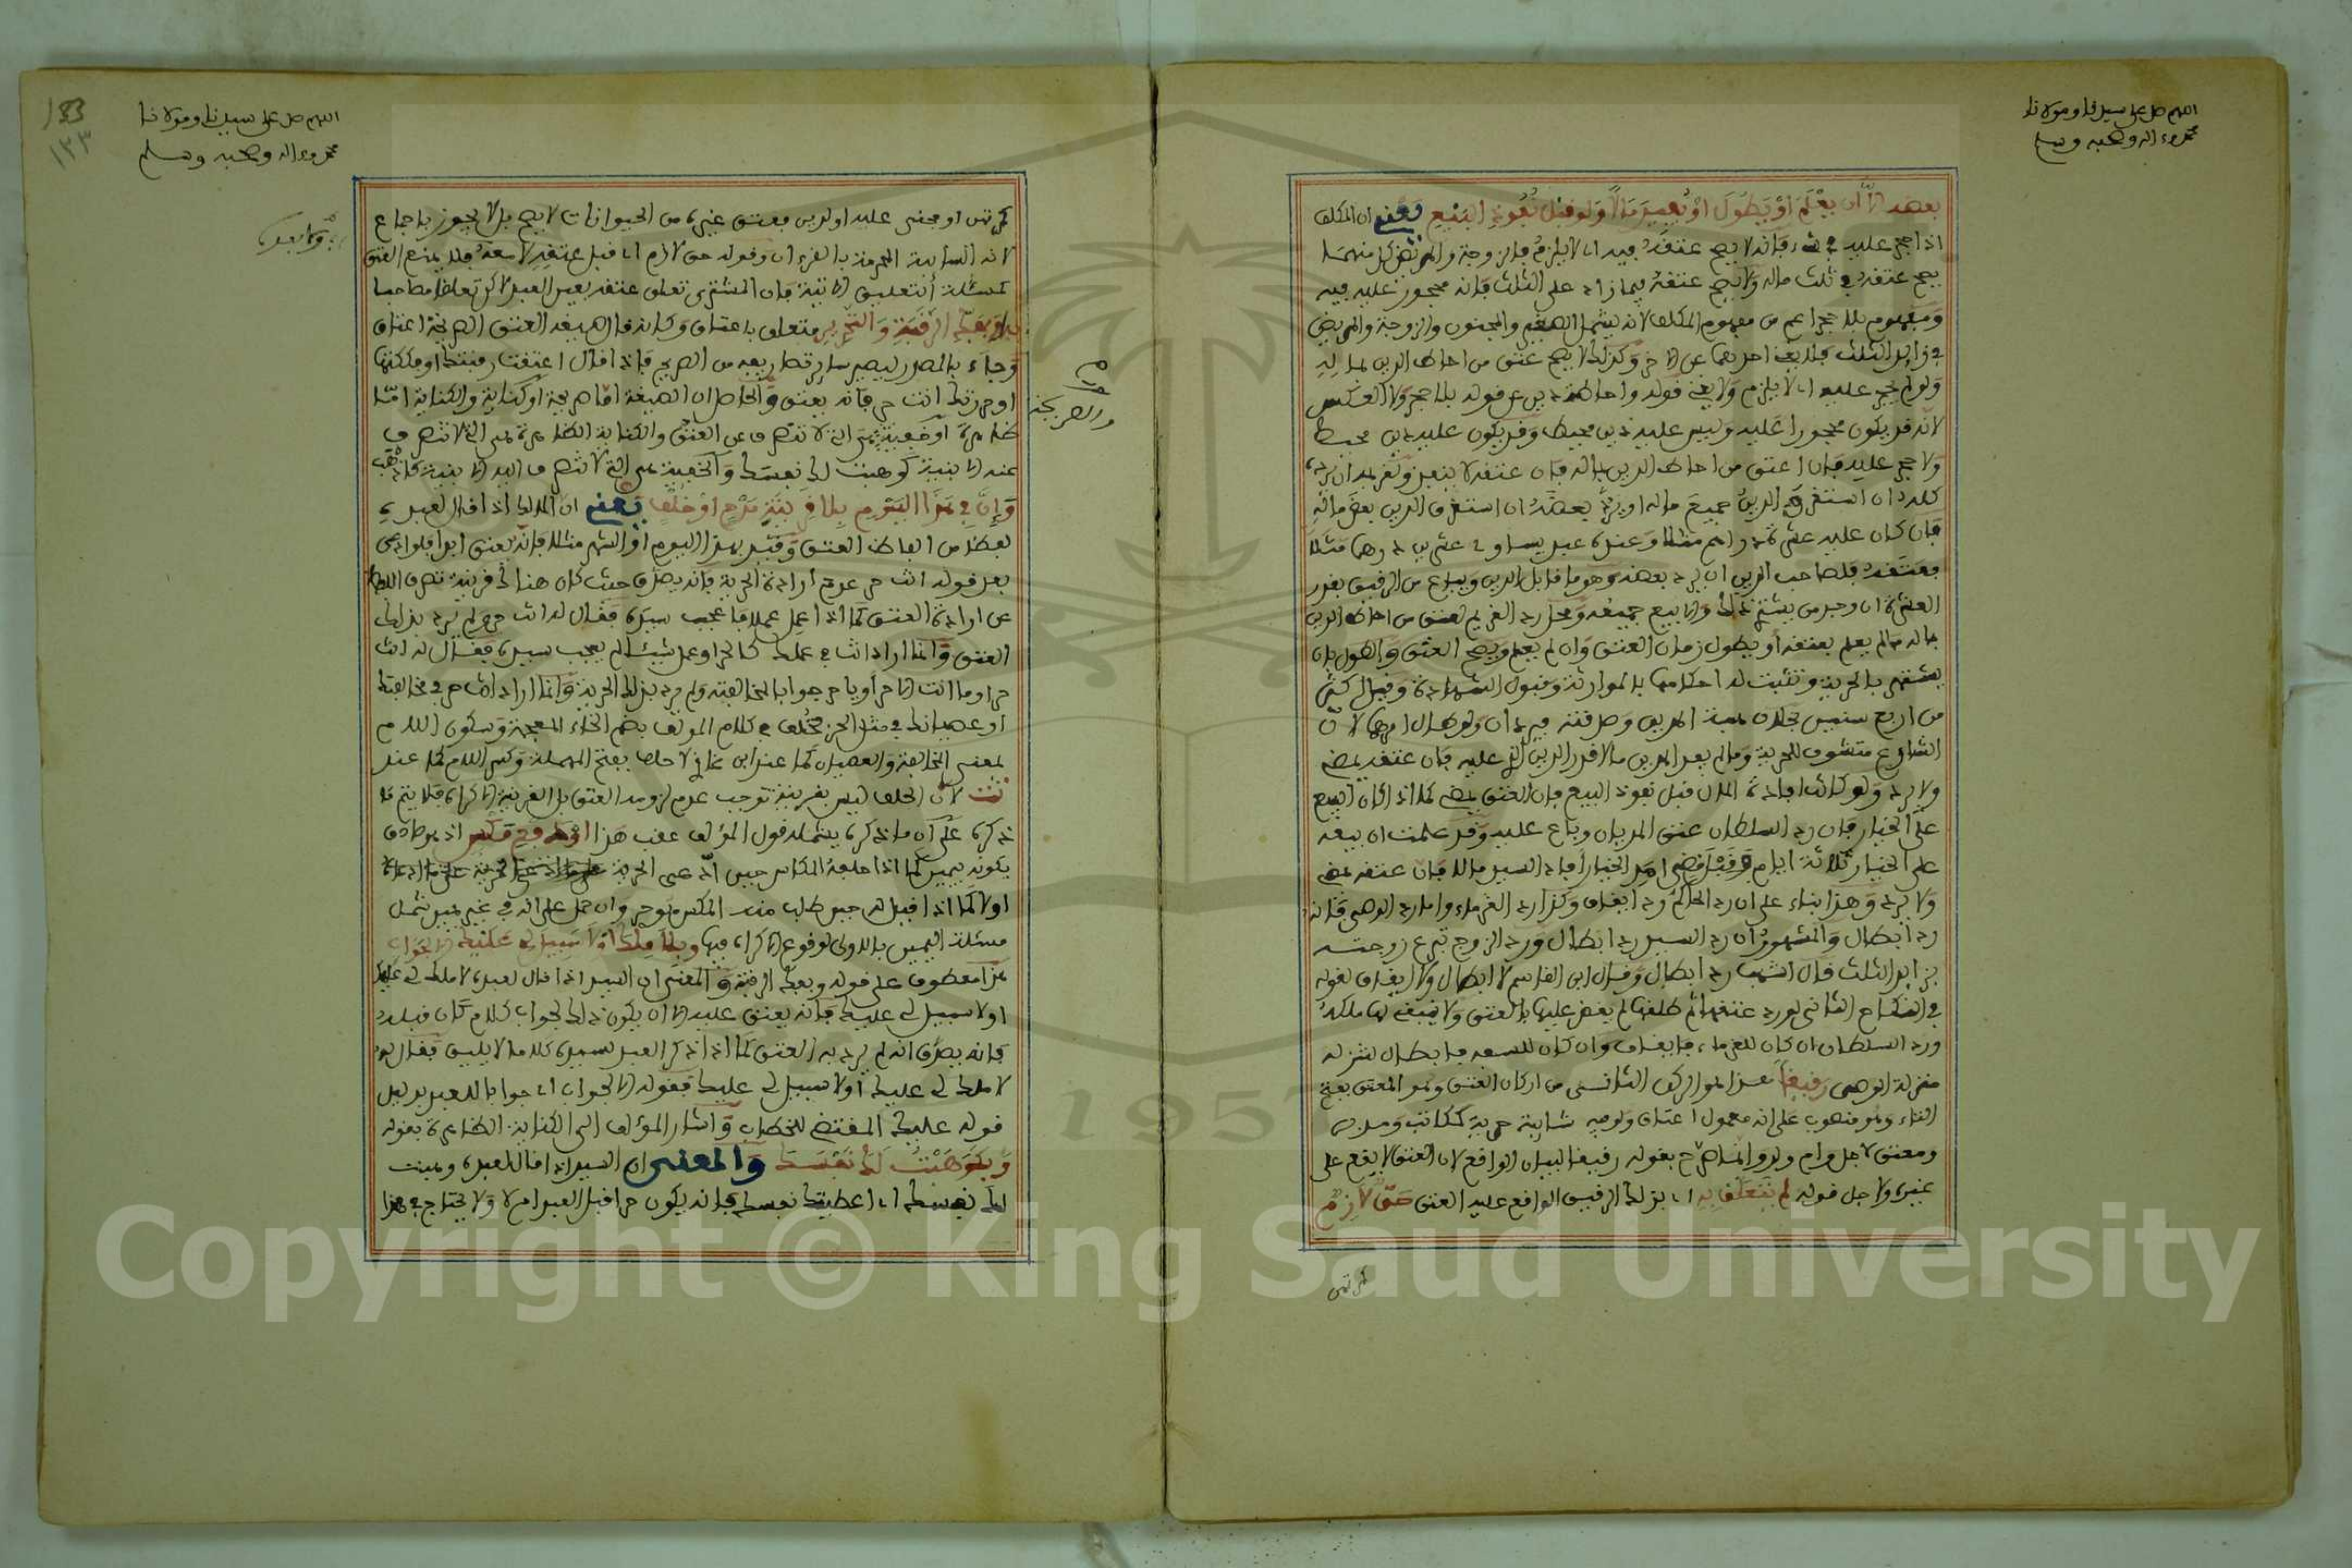 اللهم صل على سيدنا ومولانا
محمد وءاله وصحبه وسلم
بعضه إلا أن يعلم أو يطول أو يفيد مالا ولو قبل نفوذ البيع يعني ان المكلف
اذا حجر عليه في شيء فانه لا يصح عتقه فيه اي لا يلزم فالزوجة والمريض كل منهما
يصح عتقه في ثلث ماله ولا يصح عتقه فيما زاد على الثلث فانه محجور عليه فيه
ومفهوم بلا حجر اعم من مفهوم المكلف لانه يشمل الصغير والمجنون والزوجة والمريض
في زايد الثلث فلا يغني احدهما عن الاخر وكذلك لا يصح عتق من احاط الدين بماله
ولو لم يحجر عليه اي لا يلزم ولا يغني قوله واحاطة دين عن قوله بلا حجر ولا العكس
لانه قد يكون محجورا عليه وليس عليه دين محيط وقد يكون عليه دين محيط
ولا حجر عليه فان اعتق من احاط الدين بماله فان عتقه لا ينفذ ولغريمه ان يرده
كله ان استغرق الدين جميع ماله او يرد بعضه ان استغرق الدين بعض ماله
فان كان عليه عشرة دراهم مثلا وعنده عبد يساوي عشرين درهما مثلا
فعتقه فلصاحب الدين ان يرد بعضه وهو ما قابل الدين ويباع من الرقيق بقدر
العشرة ان وجد من يشتري ذلك والا بيع جميعه ومحل رد الغريم لعتق من احاط الدين
بماله ما لم يعلم بعتقه او يطول زمان العتق وان لم يعلم ويصح العتق والطول بان
يشتهر بالحرية وتثبت له احكامها بالموارثة وقبول الشهادة وقيل اكثر
من اربع سنين بخلاف هبة المدين وصدقته فيردان ولو طال امرهما لان
الشارع متشوف للحرية وما لم يفد المدين مالا قدر الدين الذي عليه فان عتقه يمضي
ولا يرد ولو كانت افادة المال قبل نفوذ البيع فان العتق يمضي كما اذا كان البيع
على الخيار فان رد السلطان عتق المديان وباع عليه وقد علمت ان بيعه
على الخيار ثلاثة ايام وقبل مضي امد الخيار افاد السيد مالا فان عتقه يمضي
ولا يرد وهذا بناء على ان رد الحاكم رد ايقاف وكذا رد الغرماء واما رد الوصي فانه
رد ابطال والمشهور ان رد السيد رد ابطال ورد الزوج تبرع زوجته
بزايد الثلث قال اشهب رد ابطال وقال ابن القاسم لا ابطال ولا ايقاف لقوله
في النكاح الثاني لو رد عتقها ثم طلقها لم يقض عليها بالعتق ولا ينبغي لها ملكه
ورد السلطان ان كان للغرماء فايقاف وان كان للسفه فابطال لتنزله
منزلة الوصي رقيقا هذا هو الركن الثاني من اركان العتق وهو المعتق بفتح
التاء وهو منصوب على انه معمول اعتاق ولو فيه شايبة حرية كمكاتب ومدبر
ومعتق لاجل وام ولد والمناصرح بقوله رقيقا لبيان الواقع لان العتق لا يقع على
غيره ولاجل قوله لم يتعلق به اي بذلك الرقيق الواقع عليه العتق حق لازم
كمرتهن
اللهم صل على سيدنا ومولانا
محمد وءاله وصحبه وسلم
133
١٣٣
كمرتهن او مجني عليه او لدين فعتق غيره من الحيوانات لا يصح بل لا يجوز باجماع
لانه السايبة المحرمة بالقرءان وقوله حق لازم اي قبل عتقه لا معه فلا يمنع العتق
كمسئلة التعليق الاتية فان المشتري تعلق عتقه بعين العبد لاكن تعلقا مصاحبا
به وبفك الرقبة والتحرير متعلق باعتاق وكانه قال صيغة العتق الصريحة اعتاق
وجاء بالمصدر ليصير ساير تصاريفه من الصريح فاذا قال اعتقت رقبتك او فككتها
او حررتك انت حر فانه يعتق والحاصل ان الصيغة اما صريحة او كناية والكناية اما
ظاهرة او خفية هي التي لا تنصرف عن العتق والكناية الظاهرة هي التي لا تنصرف
عنه الا بنية كوهبت لك نفسك والخفية هي التي لا تنصرف اليه الا بنية كاذهب
وإن في هذا اليوم بلا قرينة مدح أو خلف يعني ان المالك اذا قال لعبده
لفظا من الفاظ العتق وقيد بهذا اليوم او الشهر مثلا فانه يعتق ابدا فلو ادعى
بعد قوله انت حر عدم ارادة الحرية فانه يصدق حيث كان هناك قرينة تصرف اللفظ
عن ارادة العتق كما اذا عمل عملا فاعجب سيده فقال له انت حر ولم يرد بذلك
العتق وانما اراد انت في عملك كالحر او عمل شيئا لم يعجب سيده فقال له انت
حر او ما انت الا حر او يا حر جوابا لمخالفته ولم يرد بذلك الحرية وانما اراد انت حر في مخالفتك
او عصيانك في مثل الحر فخلف في كلام المولف بضم الخاء المعجمة وسكون اللام
بمعنى المخالفة والعصيان كما عند ابن غازي لا حلف بفتح المهملة وكسر اللام كما عند
تت لان الحلف ليس بقرينة توجب عدم لزوم العتق بل القرينة الاكراه فلا يتم ما
ذكره على ان ما ذكره يشمله قول المؤلف عقب هذا أو دفع مكس اذ هو صادق
بكونه بيمين كما اذا حلفه المكاس حين ادعى الحرية
اولا كما اذا قيل له حين طلب منه المكس هو حر وان حمل على انه في غير يمين شمل
مسئلة اليمين بالاولى لوقوع الاكراه فيها وبلا ملك أو لا سبيل لي عليك إلا لجواب
هذا معطوف على قوله وبفك الرقبة والمعنى ان السيد اذا قال لعبده لا ملك لي عليك
او لا سبيل لي عليك فانه يعتق عليه الا ان يكون ذلك لجواب كلام كان قبله
فانه يصدق انه لم يرد به العتق كما اذا ذكر العبد لسيده كلاما لا يليق فقال له
لا ملك لي عليك او لا سبيل لي عليك فقوله الا لجواب اي جوابا للعبد بدليل
قوله عليك المقتضي للخطاب واشار المؤلف الى الكناية الظاهرة بقوله
وبكوهبت لك نفسك والمعنى ان السيد اذا قال لعبده وهبت
لك نفسك اي اعطيتك نفسك فانه يكون حرا قبل العبد ام لا ولا يحتاج في هذا
صح
والصريحة